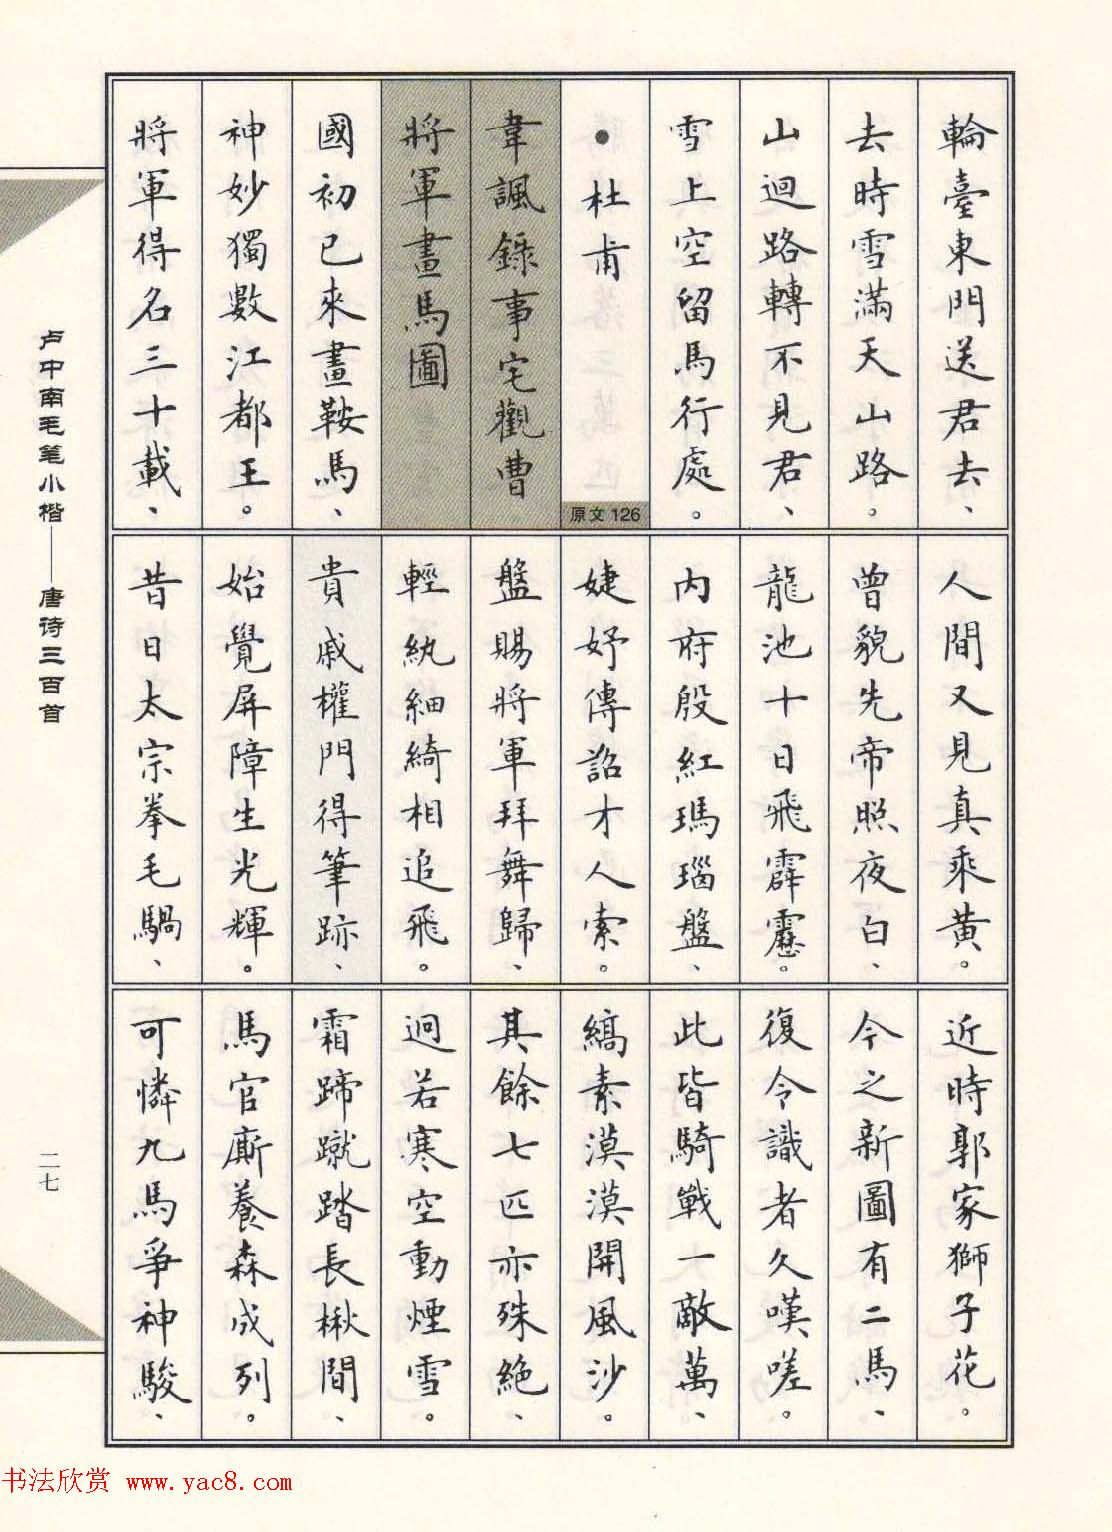 輪臺東門送君去、
去時雪滿天山路。
山迴路轉不見君、
雪上空留馬行處。
●杜甫
原文126
韋諷錄事宅觀曹
將軍畫馬圖
國初已來畫鞍馬、
神妙獨數江都王。
將軍得名三十載、
人間又見真乘黃。
曾貌先帝照夜白、
龍池十日飛霹靂。
内府殷紅瑪瑙盤、
婕妤傳詔才人索。
盤賜將軍拜舞歸、
輕紈細綺相追飛。
貴戚權門得筆跡、
始覺屏障生光輝。
昔日太宗拳毛騧、
近時郭家獅子花。
今之新圖有二馬、
復令識者久嘆嗟。
此皆騎戰一敵萬、
縞素漠漠開風沙。
其餘七匹亦殊絕、
迥若寒空動煙雪。
霜蹄蹴踏長楸間、
馬官廝養森成列。
可憐九馬爭神駿、
卢中南毛笔小楷——唐诗三百首
二七
书法欣赏 www.yac8.com